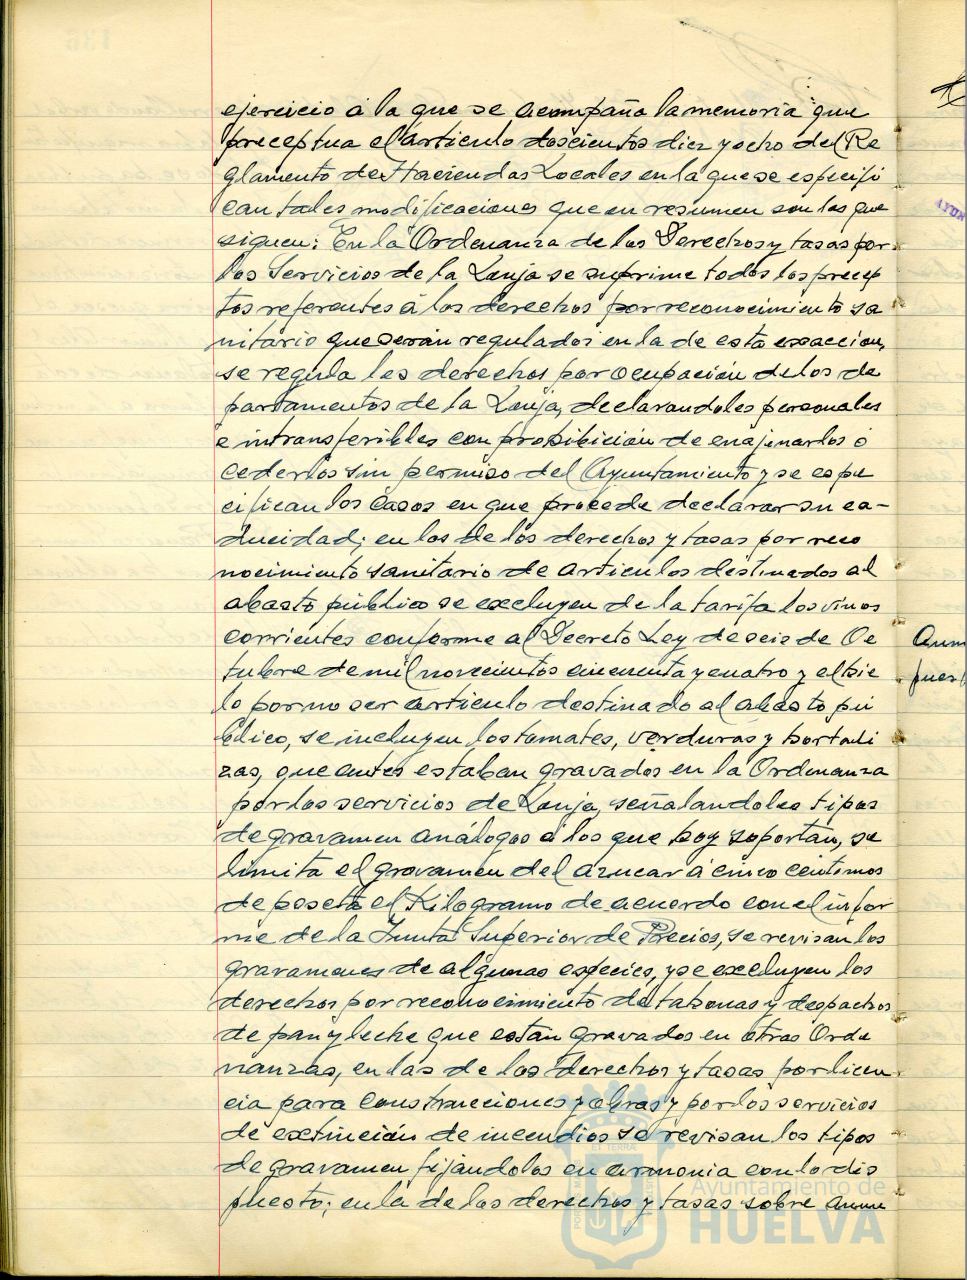 ejercicio á la que se acompaña la memoria que
preceptua el articulo doscientos diez y ocho del Re
glamento de Haciendas Locales en la que se especifi
can tales modificaciones que en resumen son las que
siguen: En la Ordenanza de los Derechos y tasas por
los Servicios de la Lonja se suprime todos los precep
tos referentes á los derechos por reconocimiento sa
nitario que serán regulados en la de esta exacción,
se regula los derechos por ocupación de los de
partamentos de la Lonja, declarandoles personales
é intransferibles con prohibición de enajenarlos ó
cederlos sin permiso del Ayuntamiento y se espe
cifican los casos en que procede declarar su ca-
ducidad; en los de los derechos y tasas por reco
nocimiento sanitario de articulos destinados al
abasto público se excluyen de la tarifa los vinos
corrientes conforme al Decreto Ley de seis de Oc
tubre de mil novecientos cincuenta y cuatro y el hie
lo por no ser articulo destinado al abasto pú
blico, se incluyen los tomates, verduras y hortali
zas, que antes estaban gravados en la Ordenanza
por los servicios de Lonja, señalandoles tipos
de gravamen análogos a los que hoy soportan, se
limita el gravamen del azucar á cinco centimos
de peseta el Kilogramo de acuerdo con el infor
me de la Junta Superior de Precios, se revisan los
gravamenes de algunas especies, y se excluyen los
derechos por reconocimiento de tahonas y despachos
de pan y leche que estan gravados en otras Orde
nanzas, en las de los derechos y tasas por licen
cia para construcciones y obras y por los servicios
de extinción de incendios se revisan los tipos
de gravamen fijándolos en armonia con lo dis
puesto; en la de los derechos y tasas sobre anun
Ayuntamiento de
HUELVA